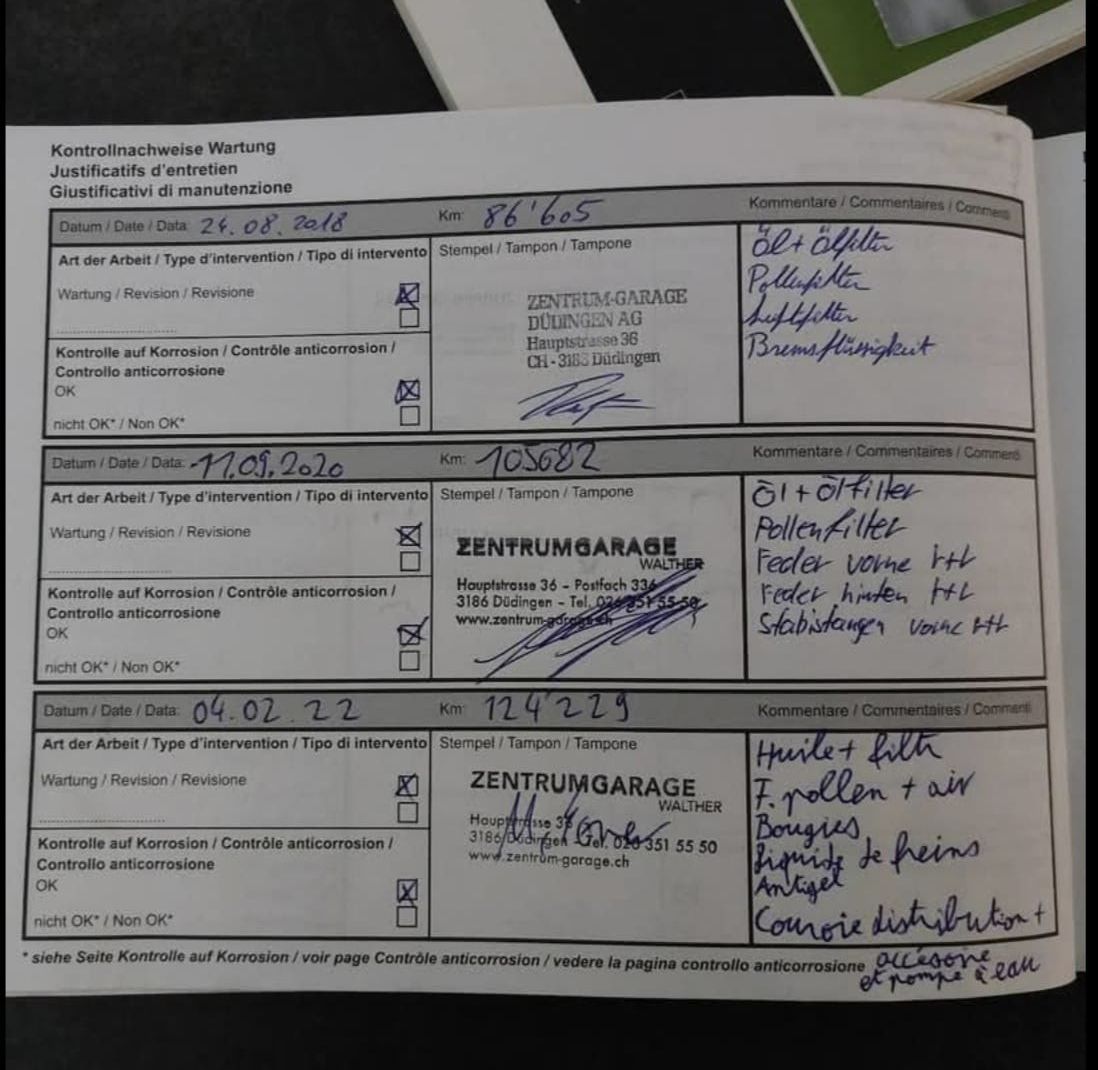 Kontrollnachweise Wartung
Justificatifs d'entretien
Giustificativi di manutenzione
Datum / Date / Data: 24.08.2018
Km: 86'605
Kommentare / Commentaires / Commenti
Art der Arbeit / Type d'intervention / Tipo di intervento
Stempel / Tampon / Tampone
Öl + Ölfilter
Pollenfilter
Luftfilter
Bremsflüssigkeit
Wartung / Revision / Revisione
ZENTRUM-GARAGE
DÜDINGEN AG
Hauptstrasse 36
CH - 3186 Düdingen
Kontrolle auf Korrosion / Contrôle anticorrosion /
Controllo anticorrosione
OK
nicht OK* / Non OK*
Datum / Date / Data: 11.09.2020
Km: 105682
Kommentare / Commentaires / Commenti
Art der Arbeit / Type d'intervention / Tipo di intervento
Stempel / Tampon / Tampone
Öl + Ölfilter
Pollenfilter
Feder vorne r+l
Feder hinten r+l
Stabistangen vorne r+l
Wartung / Revision / Revisione
ZENTRUMGARAGE
WALTHER
Hauptstrasse 36 - Postfach 336
3186 Düdingen - Tel. 026 351 55 50
www.zentrum-garage.ch
Kontrolle auf Korrosion / Contrôle anticorrosion /
Controllo anticorrosione
OK
nicht OK* / Non OK*
Datum / Date / Data: 04.02.22
Km: 124'229
Kommentare / Commentaires / Commenti
Art der Arbeit / Type d'intervention / Tipo di intervento
Stempel / Tampon / Tampone
Huile + filtr
F. pollen + air
Bougies
Liquide de freins
Antigel
Courroie distribution +
accésoire
et pompe à eau
Wartung / Revision / Revisione
ZENTRUMGARAGE
WALTHER
Hauptstrasse 36
3186 Düdingen - Tel. 026 351 55 50
www.zentrum-garage.ch
Kontrolle auf Korrosion / Contrôle anticorrosion /
Controllo anticorrosione
OK
nicht OK* / Non OK*
* siehe Seite Kontrolle auf Korrosion / voir page Contrôle anticorrosion / vedere la pagina controllo anticorrosione